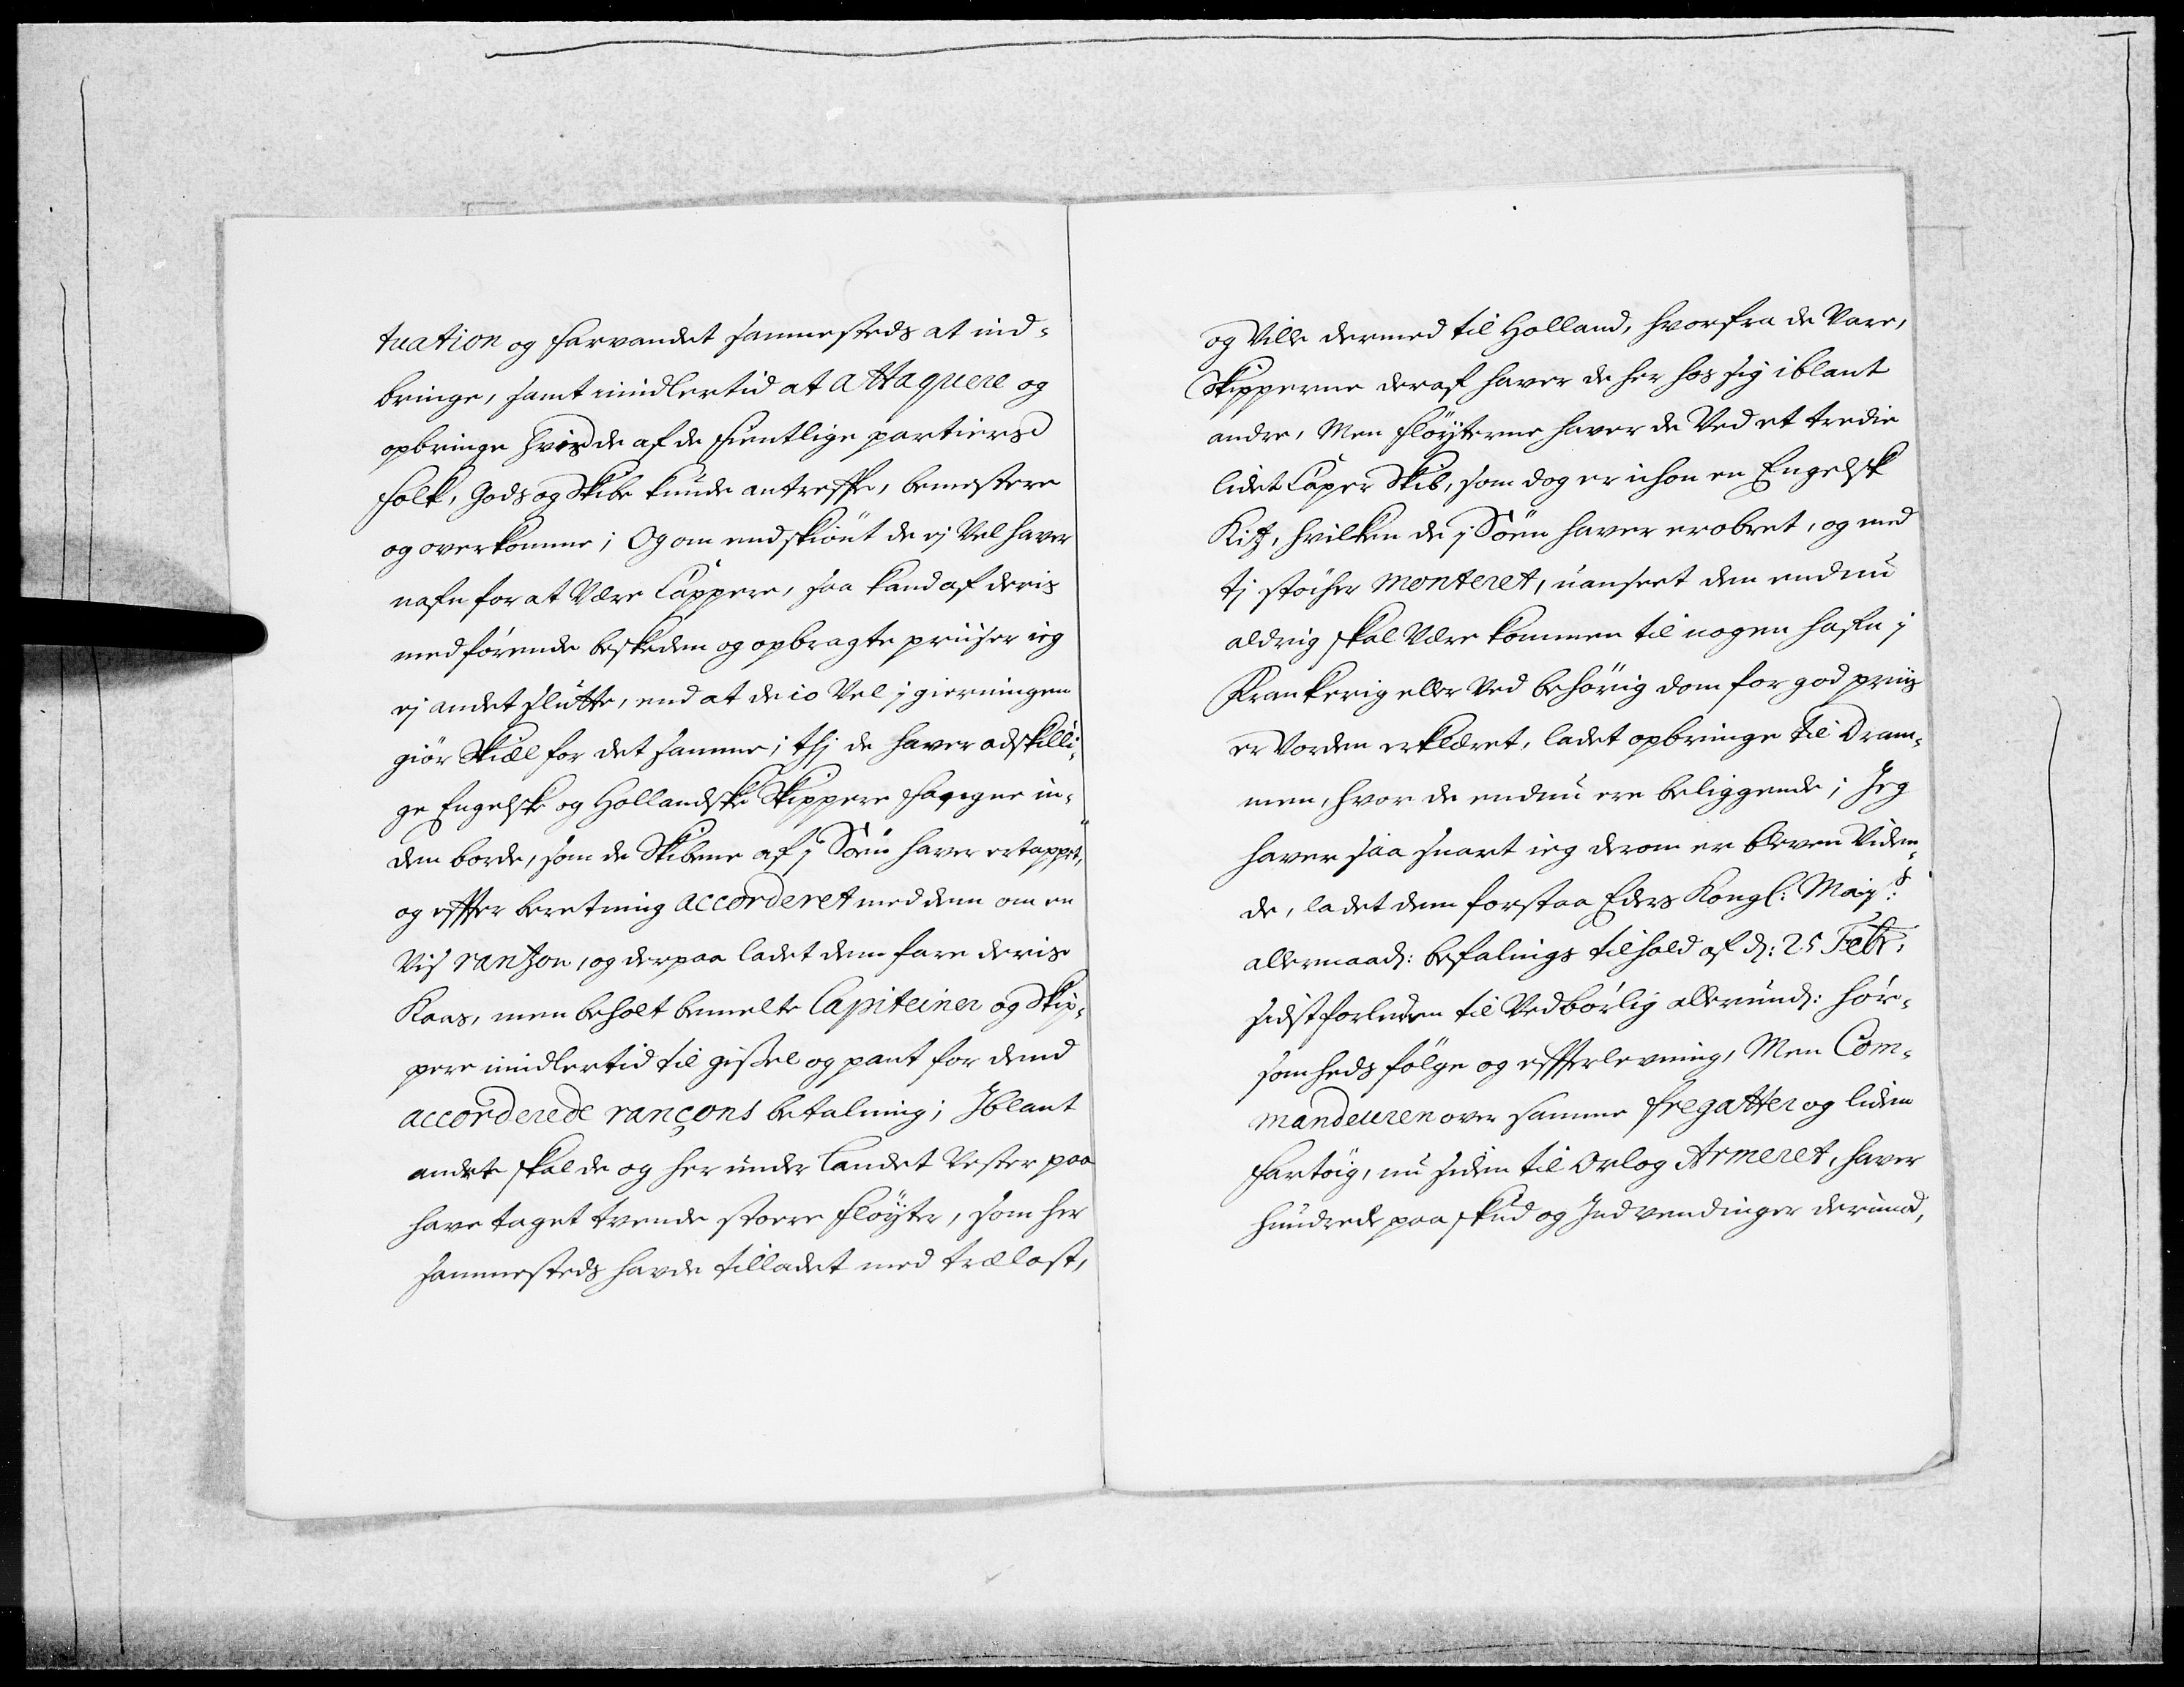 tuation og farvandet sammesteds at ind-
bringe, samt imidlertid at attaquere og
opbringe hvis de af de fientlige partiers
folk, gods og skibe kunde antreffe, bemestere
og overkomme; Og om endskiönt de ej vel haver
nafn for at være Cappere, saa kand af deris
medförende beskeden og opbragte priiser ieg
ej andet slutte, end at de io vel j gierningen
giör skiæl for det samme; thj de haver adskilli-
ge Engelsk og Hollandske Skippere fangne in-
den borde, som de Skibene af j Söen haver ertappet,
og effter beretning accorderet med dem om en
vis ranzon, og derpaa ladet dem fare deris
Kaas, men beholt bemelte Capiteiner og Skip-
pere imidlertid til gissel og pant for dend
accorderede rançons betalning; Iblant
andet skal de og her under Landet Vester paa
have taget tvende stoere flöyter, som her
sammesteds havde tilladet med trælast,
og ville dermed til Holland, hvorfra de vare,
Skipperne deraf haver de her hos sig iblant
andre, Men flöyterne haver de ved et tredie
lidet Caper Skib, som dog er ichon en Engelsk
Kitz, hvilken de j Söen haver erobret, og med
tj stöcher monteret, uanseet den endnu
aldrig skal være kommen til nogen hafn j
Frankerig eller ved behörig dom for god priis
er vorden erklæret, ladet opbringe til Dram-
men, hvor de endnu ere beliggende; Jeg
haver saa snart ieg derom er bleven viden-
de, ladet dem forstaa Eders Kongl: Mayts:
allernaad: befalings tilhold af d: 25 Febr:
sidstforleden til vedbörlig allerund: hör-
somheds fölge og effterlevning, Men Com-
mandeuren over samme fregatter og liden
fartöig, nu siden til Orlog Armeret, haver
hundrede paa skud og Indvendinger derimod,